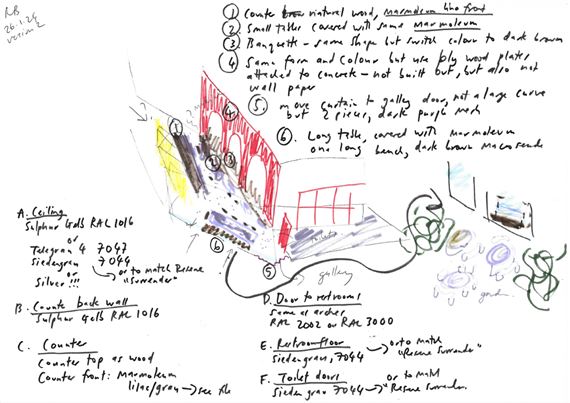 RB
26.1.26
version 2
① Counter natural wood, marmoleum lino front
② Small tables covered with same marmoleum
③ Banquette - same shape but switch colour to dark brown
④ Same form and colour but use ply wood plates
attached to concrete - not built out, but also not
wall paper
⑤ move curtain to gallery door, not a large curve
but 2 pieces, dark purple mesh
⑥. Long table, covered with marmoleum
one long bench, dark brown
1
2
3
4
6
5
gallery
A. Ceiling
Sulphur gelb RAL 1016
or
Telegrau 4 7047
Siedengrau 7044
or
Silver!!!
or to match Resene
"Surrender"
B. Counter back wall
Sulphur gelb RAL 1016
C. Counter
Counter top as wood
Counter front: Marmoleum
lilac/grau → see file
D. Door to restrooms
same as arches
RAL 2002 or RAL 3000
E. Restroom floor
Siedengrau, 7044 → or to match
"Resene Surrender"
F. Toilet doors
Siedengrau 7044 → or to match
"Resene Surrender.